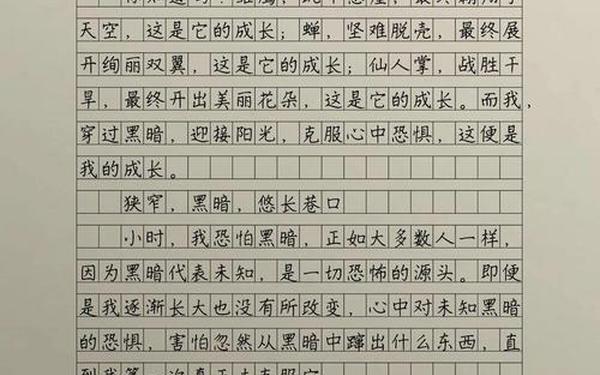 天空，这是它的成长；蝉，坚难脱壳，最终展
开绚丽双翼，这是它的成长；仙人掌，战胜干
旱，最终开出美丽花朵，这是它的成长。而我，
穿过黑暗，迎接阳光，克服心中恐惧，这便是
我的成长。
狭窄，黑暗，悠长巷口
小时，我恐怕黑暗，正如大多数人一样，
因为黑暗代表未知，是一切恐怖的源头。即便
是我逐渐长大也没有所改变，心中对未知黑暗
的恐惧，害怕忽然从黑暗中蹿出什么东西，直